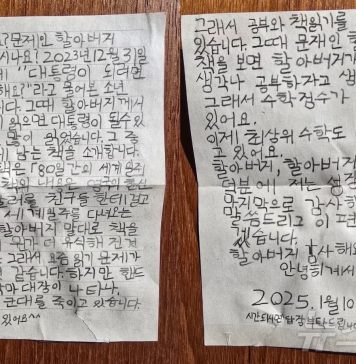 요? 문재인 할아버지
시나요? 2023년 12월 31일
에게 "대통령이 되려면
해요?" 라고 물어본 소년
다. 그때 할아버지께서
이 읽으면 대통령이 될 수 있
많이 읽었습니다. 그 중
에 남는 책을 소개합니다.
은 '80일간의 세계 일주'
책의 내용은
친구들
세계일주를 다녀오는
할아버지 말대로 책을
뭔가 더 유식해진
그래서 요즘 읽기 문제가
같습니다. 하지만 핸드
마 대장이 나타나,
군대를 죽이고 있습니다.
있어요^^
그래서 공부와 책읽기를
있습니다. 그때 문재인 할
책을 보면 할아버지가
생각나 공부하자고 생
그래서 수학점수가
있어요.
이제 최상위 수학도
고 있어요.
할아버지, 할아버지
덕분에 저는 생
마지막으로 감사하
말씀드리고 이 편
겠습니다.
할아버지 감사해요
안녕히계세
2025. 1월 10
시간되시면 답장부탁드립니다